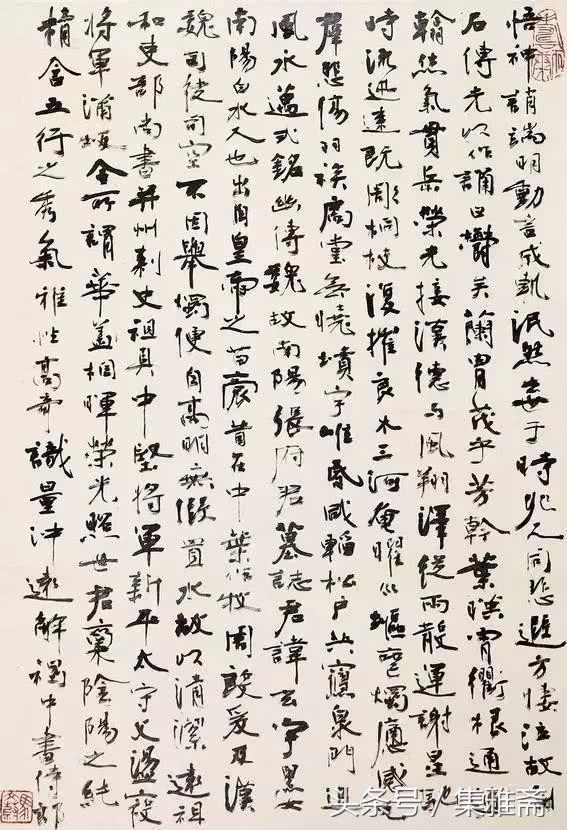 悟神誚端明動言成軌泯然去于時凡人同悲遐方悽泣故刊
石傳光以作誦曰欝矣蘭胄茂乎芳幹葉暎霄衢根通
翰氣貫岳榮光接漢德与風翔澤從雨散運謝星馳
時流迅速既彫桐枝復摧良木三河奄曜燭應感毛
羣悲傷羽族扃堂無曉墳宇唯昏咸韜松户共寢泉門追
風永邁式銘幽傳魏故南陽張府君墓誌君諱玄字黑女
南陽白水人也出自皇帝之苗裔昔在中葉作牧周殷爰及漢
魏司徒司空不因舉燭便自高明無假置水故以清潔遠祖
和吏部尚書并州刺史祖具中堅將軍新平太守父盪寇
將軍蒲坂令所謂華蓋相暉榮光照世君稟陰陽之純
精含五行之秀氣雅性高奇識量沖遠解褐中書侍郎
头条号／集雅斋